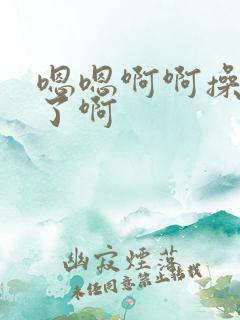 嗯嗯啊啊操
了啊
幽寂煙落
未经同意禁止转载